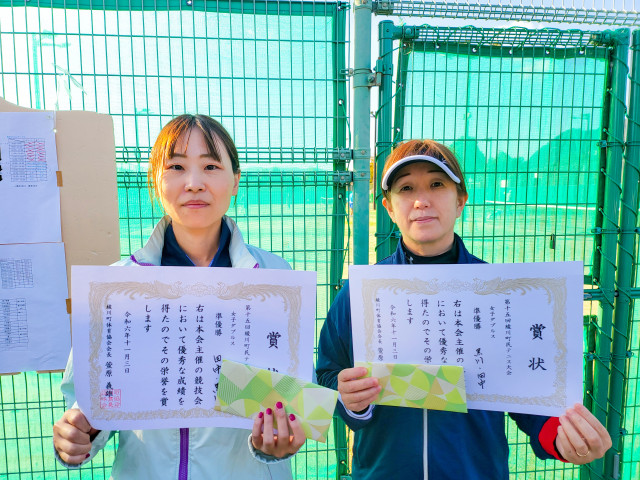 賞
第十五回綾川町民テ
女子ダブルス
準優勝
田中
右は本会主催の競技会
において優秀な成績を
得たのでその栄誉を賞
します
令和六年十一月三日
綾川町体育協会会長 菅原 義雄
賞状
第十五回綾川町民テニス大会
女子ダブルス
準優勝
田中
右は本会主催の
において優秀な
得たのでその栄
します
令和六年十一月三
綾川町体育協会会長 菅原